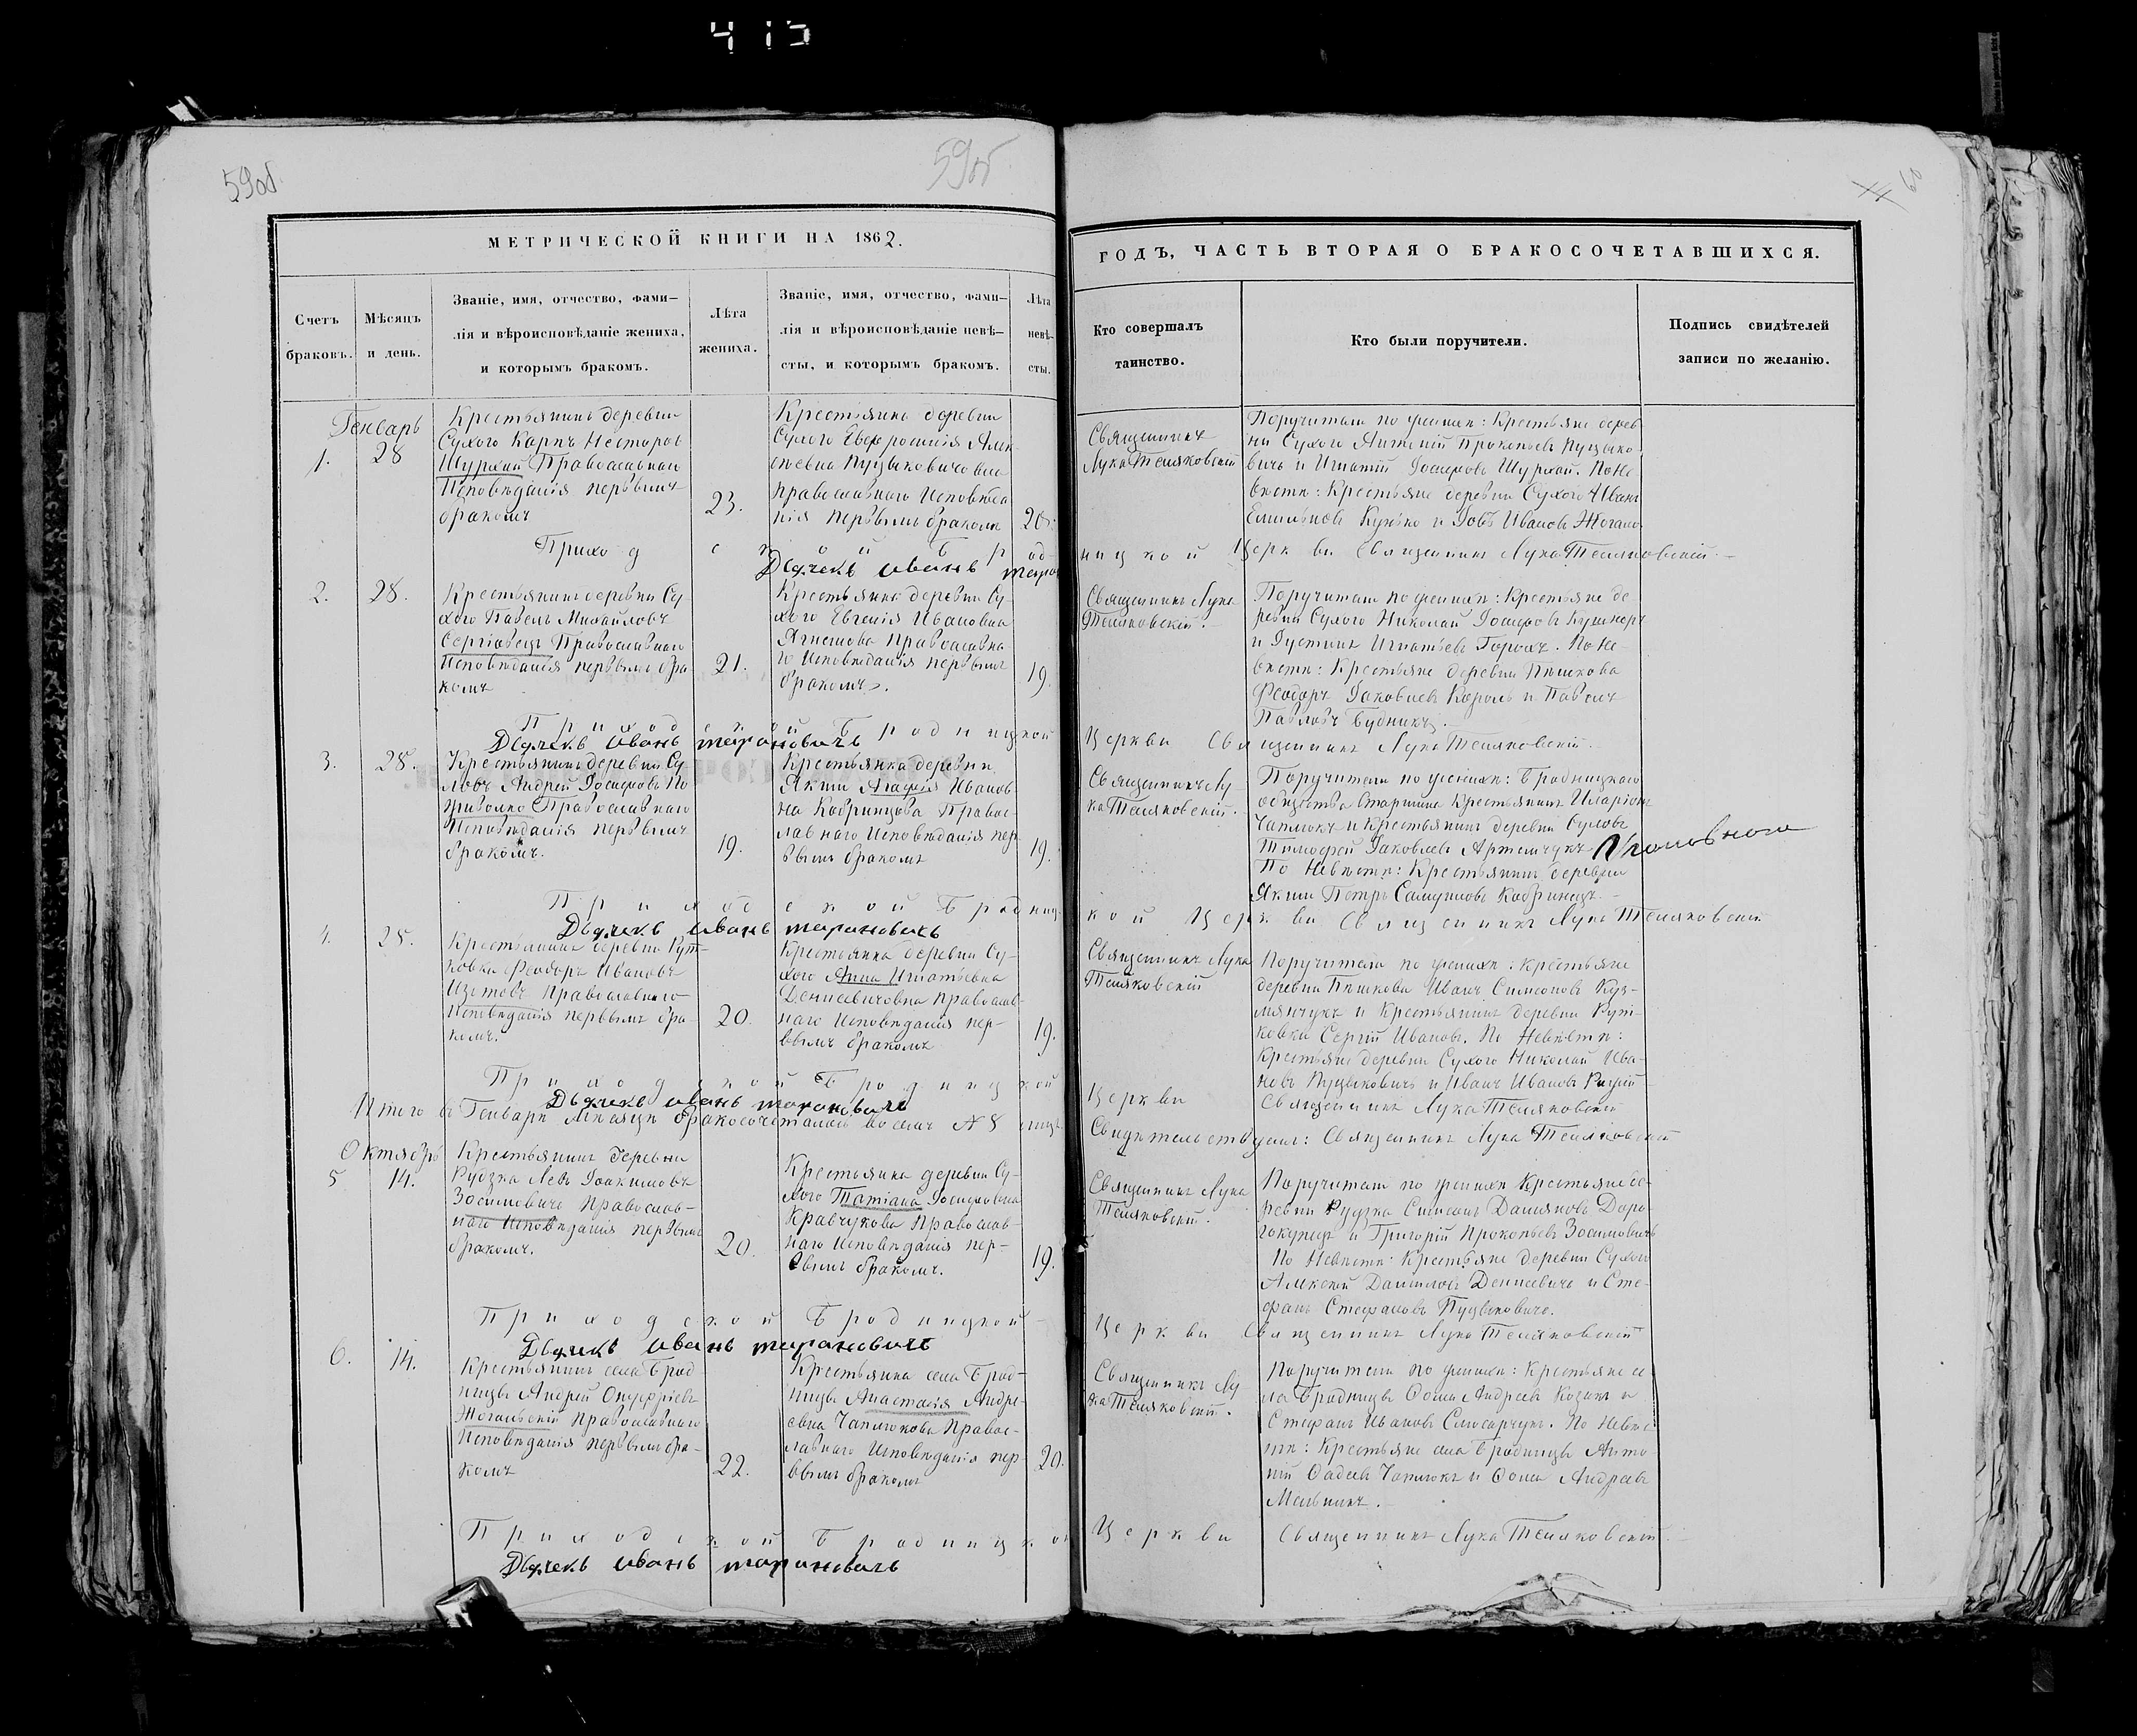 415
59об
59об
60
МЕТРИЧЕСКОЙ КНИГИ НА 1862.
ГОДЪ, ЧАСТЬ ВТОРАЯ О БРАКОСОЧЕТАВШИХСЯ.
Счетъ браковъ.
Мѣсяцъ и день.
Званіе, имя, отчество, фами-
лія и вѣроисповѣданіе жениха,
и которымъ бракомъ.
Лѣта
жениха.
Званіе, имя, отчество, фами-
лія и вѣроисповѣданіе невѣ-
сты, и которымъ бракомъ.
Лѣта
невѣ-
сты.
Кто совершалъ
таинство.
Кто были поручители.
Подпись свидѣтелей
записи по желанію.
Генварь
1.
28
Крестьянинъ деревни
Сухого Карпъ Несторовъ
Шурхай Православнаго
Исповѣданія первымъ
бракомъ
23.
Крестьянка деревни
Сухого Евфросинія Алек
сѣевна Пуцыковичовна
православнаго Исповѣда
нія первымъ бракомъ
20.
Священникъ
Лука Теляковскій
Поручители по женихѣ: Крестьяне дерев
ни Сухого Антоній Прокопьевъ Пуцыко
вичъ и Игнатій Іосифовъ Шурхай. По Не
вѣстѣ: Крестьяне деревни Сухого Иванъ
Емильяновъ Кунько и Іовъ Ивановъ
Приходской Бродницкой Церкви Священникъ Лука Теляковскій
Дьячекъ иванъ
2.
28.
Крестьянинъ деревни Су-
хого Павелъ Михайловъ
Сергіовецъ Православнаго
Исповѣданія первымъ бра
комъ
21.
Крестьянка деревни Су-
хого Евгенія Ивановна
Православна
го Исповѣданія первымъ
бракомъ.
19.
Священникъ Лука
Теляковскій.
Поручители по женихѣ: Крестьяне де
ревни Сухого Николай Іосифовъ Кушнеръ
и Іустинъ Игнатьевъ Горохъ. По Не-
вѣстѣ: Крестьяне деревни Пѣшкова
Феодоръ Іаковлевъ Король и Павелъ
Павловъ Будникъ.
Приходской Бродницкой Церкви Священникъ Лука Теляковскій.
Дьячекъ иванъ тарановичъ
3.
28.
Крестьянинъ деревни Су-
ловъ Андрей Іосифовъ По
живолко Православнаго
Исповѣданія первымъ
бракомъ.
19.
Крестьянка деревни
Якши Агафія Иванов
на Кобринцова Правос-
лавнаго Исповѣданія пер
вымъ бракомъ
19.
Священникъ Лу-
ка Теляковскій.
Поручители по женихѣ: Бродницкаго
общества Старшина Крестьянинъ Иларіонъ
Чаплюкъ и Крестьянинъ деревни Суловъ
Тимофей Іаковлевъ Артемчукъ
По Невѣстѣ: Крестьянинъ деревни
Якши Петръ Самуиловъ Кобринецъ
Приходской Бродницкой Церкви Священникъ Лука Теляковскій
Дьячекъ иванъ тарановичъ
4.
28.
Крестьянинъ деревни Рут-
ковка Феодоръ Ивановъ
Православнаго
Исповѣданія первымъ бра-
комъ.
20.
Крестьянка деревни Су-
хого Анна Игнатьевна
Денисевичовна Православ-
наго Исповѣданія пер-
вымъ бракомъ
19.
Священникъ Лука
Теляковскій
Поручители по женихѣ: Крестьяне
деревни Пѣшкова Иванъ Симеоновъ Куз-
мянчукъ и Крестьянинъ деревни Рут-
ковка Сергій Ивановъ. По Невѣстѣ:
Крестьяне деревни Сухого Николай Ива-
новъ Пуцыковичъ и Иванъ Ивановъ
Приходской Бродницкой Церкви Священникъ Лука Теляковскій
Дьячекъ иванъ тарановичъ
Итого въ Генварѣ мѣсяцѣ бракосочеталось восемь № 8 лицъ
Свидѣтельствуемъ: Священникъ Лука Теляковскій
Октябрь
5
14.
Крестьянинъ деревни
Рудзка Левъ Іоакимовъ
Зосимовичъ Православ-
наго Исповѣданія первымъ
бракомъ.
20.
Крестьянка деревни Су-
хого Татіана Іосифовна
Кравчукова Православ-
наго Исповѣданія пер-
вымъ бракомъ.
19.
Священникъ Лука
Теляковскій.
Поручители по женихѣ Крестьяне де-
ревни Рудзка Симеонъ Даміановъ Доро-
гокупецъ и Григорій Прокопьевъ Зосимовичъ
По Невѣстѣ: Крестьяне деревни Сухого
Алексѣй Даниловъ Денисевичъ и Сте-
фанъ Стефановъ Пуцыковичъ.
Приходской Бродницкой Церкви Священникъ Лука Теляковскій
Дьячекъ иванъ тарановичъ
6.
14.
Крестьянинъ села Брод
ницы Андрей Онуфріевъ
Жогальскій Православнаго
Исповѣданія первымъ бра-
комъ
22.
Крестьянка села Брод-
ницы Анастасія Андре-
евна Чаплюкова Правос-
лавнаго Исповѣданія пер
вымъ бракомъ
20.
Священникъ Лу
ка Теляковскій.
Поручители по женихѣ: Крестьяне се
ла Бродницы Ѳома Андреевъ Козакъ и
Стефанъ Ивановъ Слюсарчукъ. По Невѣс
тѣ: Крестьяне села Бродницы Анто-
ній Фадеевъ Чаплюкъ и Ѳома Андреевъ
Мельникъ.
Приходской Бродницкой Церкви Священникъ Лука Теляковскій.
Дьячекъ иванъ тарановичъ